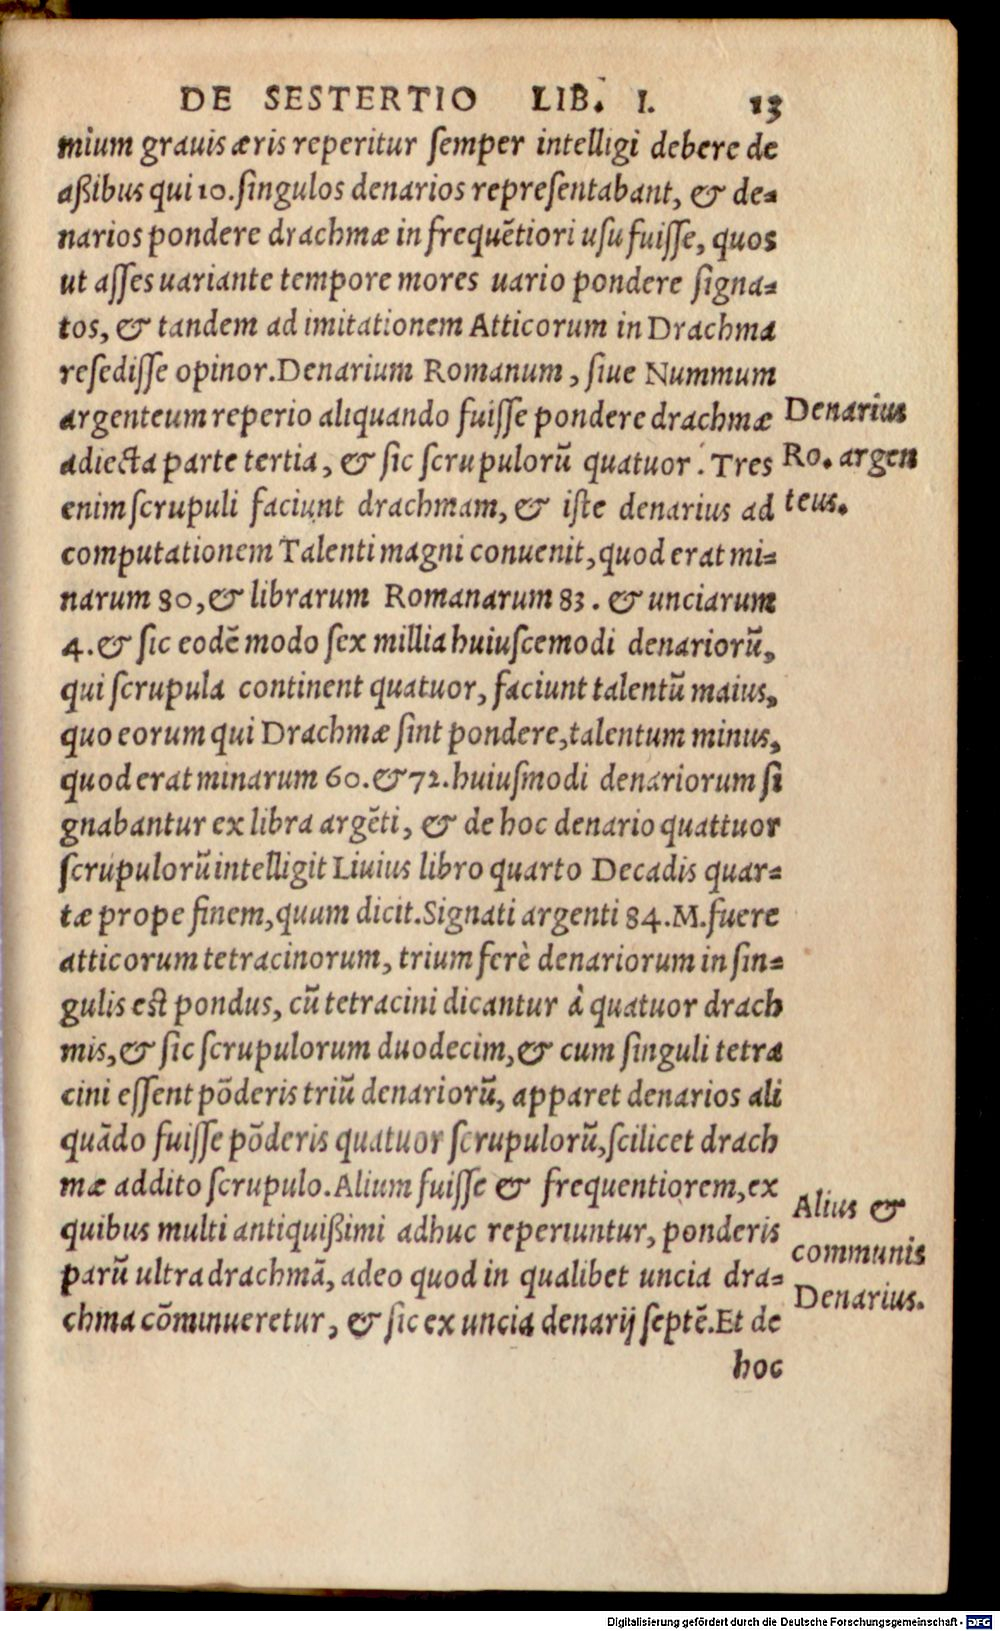 DE SESTERTIO LIB. I. 13
mium grauis æris reperitur ſemper intelligi debere de
aßibus qui 10. ſingulos denarios repreſentabant, & de-
narios pondere drachmæ in frequẽtiori uſu fuiſſe, quos
ut aſſes uariante tempore mores uario pondere ſigna-
tos, & tandem ad imitationem Atticorum in Drachma
reſediſſe opinor. Denarium Romanum, ſiue Nummum
argenteum reperio aliquando fuiſſe pondere drachmæ
Denarius
adiecta parte tertia, & ſic ſcrupulorũ quatuor. Tres
Ro. argen
enim ſcrupuli faciunt drachmam, & iſte denarius ad
teus.
computationem Talenti magni conuenit, quod erat mi-
narum 80, & librarum Romanarum 83. & unciarum
4. & ſic eodẽ modo ſex millia huiuſcemodi denariorũ,
qui ſcrupula continent quatuor, faciunt talentũ maius,
quo eorum qui Drachmæ ſint pondere, talentum minus,
quod erat minarum 60. & 72. huiuſmodi denariorum ſi
gnabantur ex libra argẽti, & de hoc denario quattuor
ſcrupulorũ intelligit Liuius libro quarto Decadis quar-
tæ prope finem, quum dicit. Signati argenti 84. M. fuere
atticorum tetracinorum, trium ferè denariorum in ſin-
gulis eſt pondus, cũ tetracini dicantur à quatuor drach
mis, & ſic ſcrupulorum duodecim, & cum ſinguli tetra
cini eſſent põderis triũ denariorũ, apparet denarios ali
quãdo fuiſſe põderis quatuor ſcrupulorũ, ſcilicet drach
mæ addito ſcrupulo. Alium fuiſſe & frequentiorem, ex
Alius &
quibus multi antiquißimi adhuc reperiuntur, ponderis
communis
parũ ultra drachmã, adeo quod in qualibet uncia dra-
Denarius.
chma cõminueretur, & ſic ex uncia denarij ſeptẽ. Et de
hoc
Digitalisierung gefördert durch die Deutsche Forschungsgemeinschaft - DFG